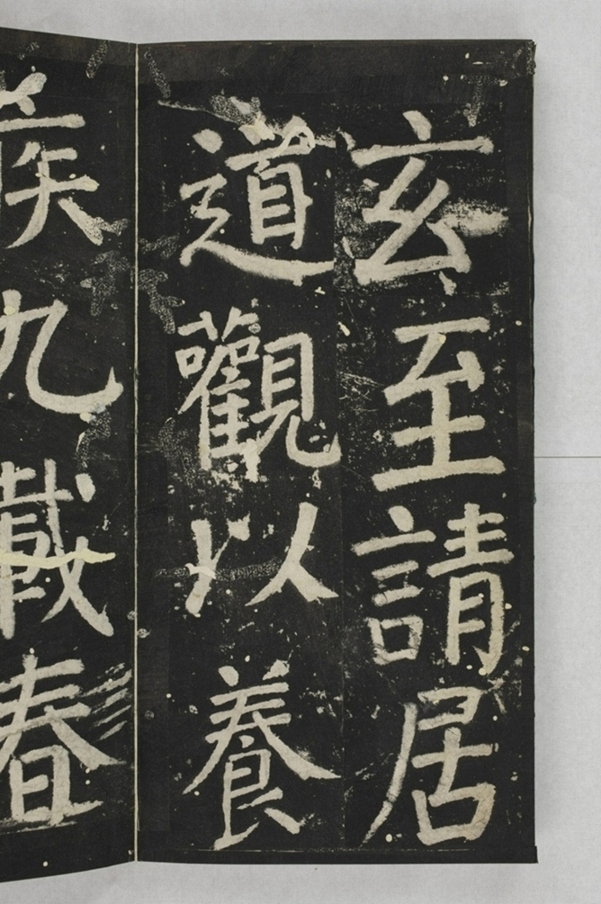 玄至請居
道觀以養
疾九載春